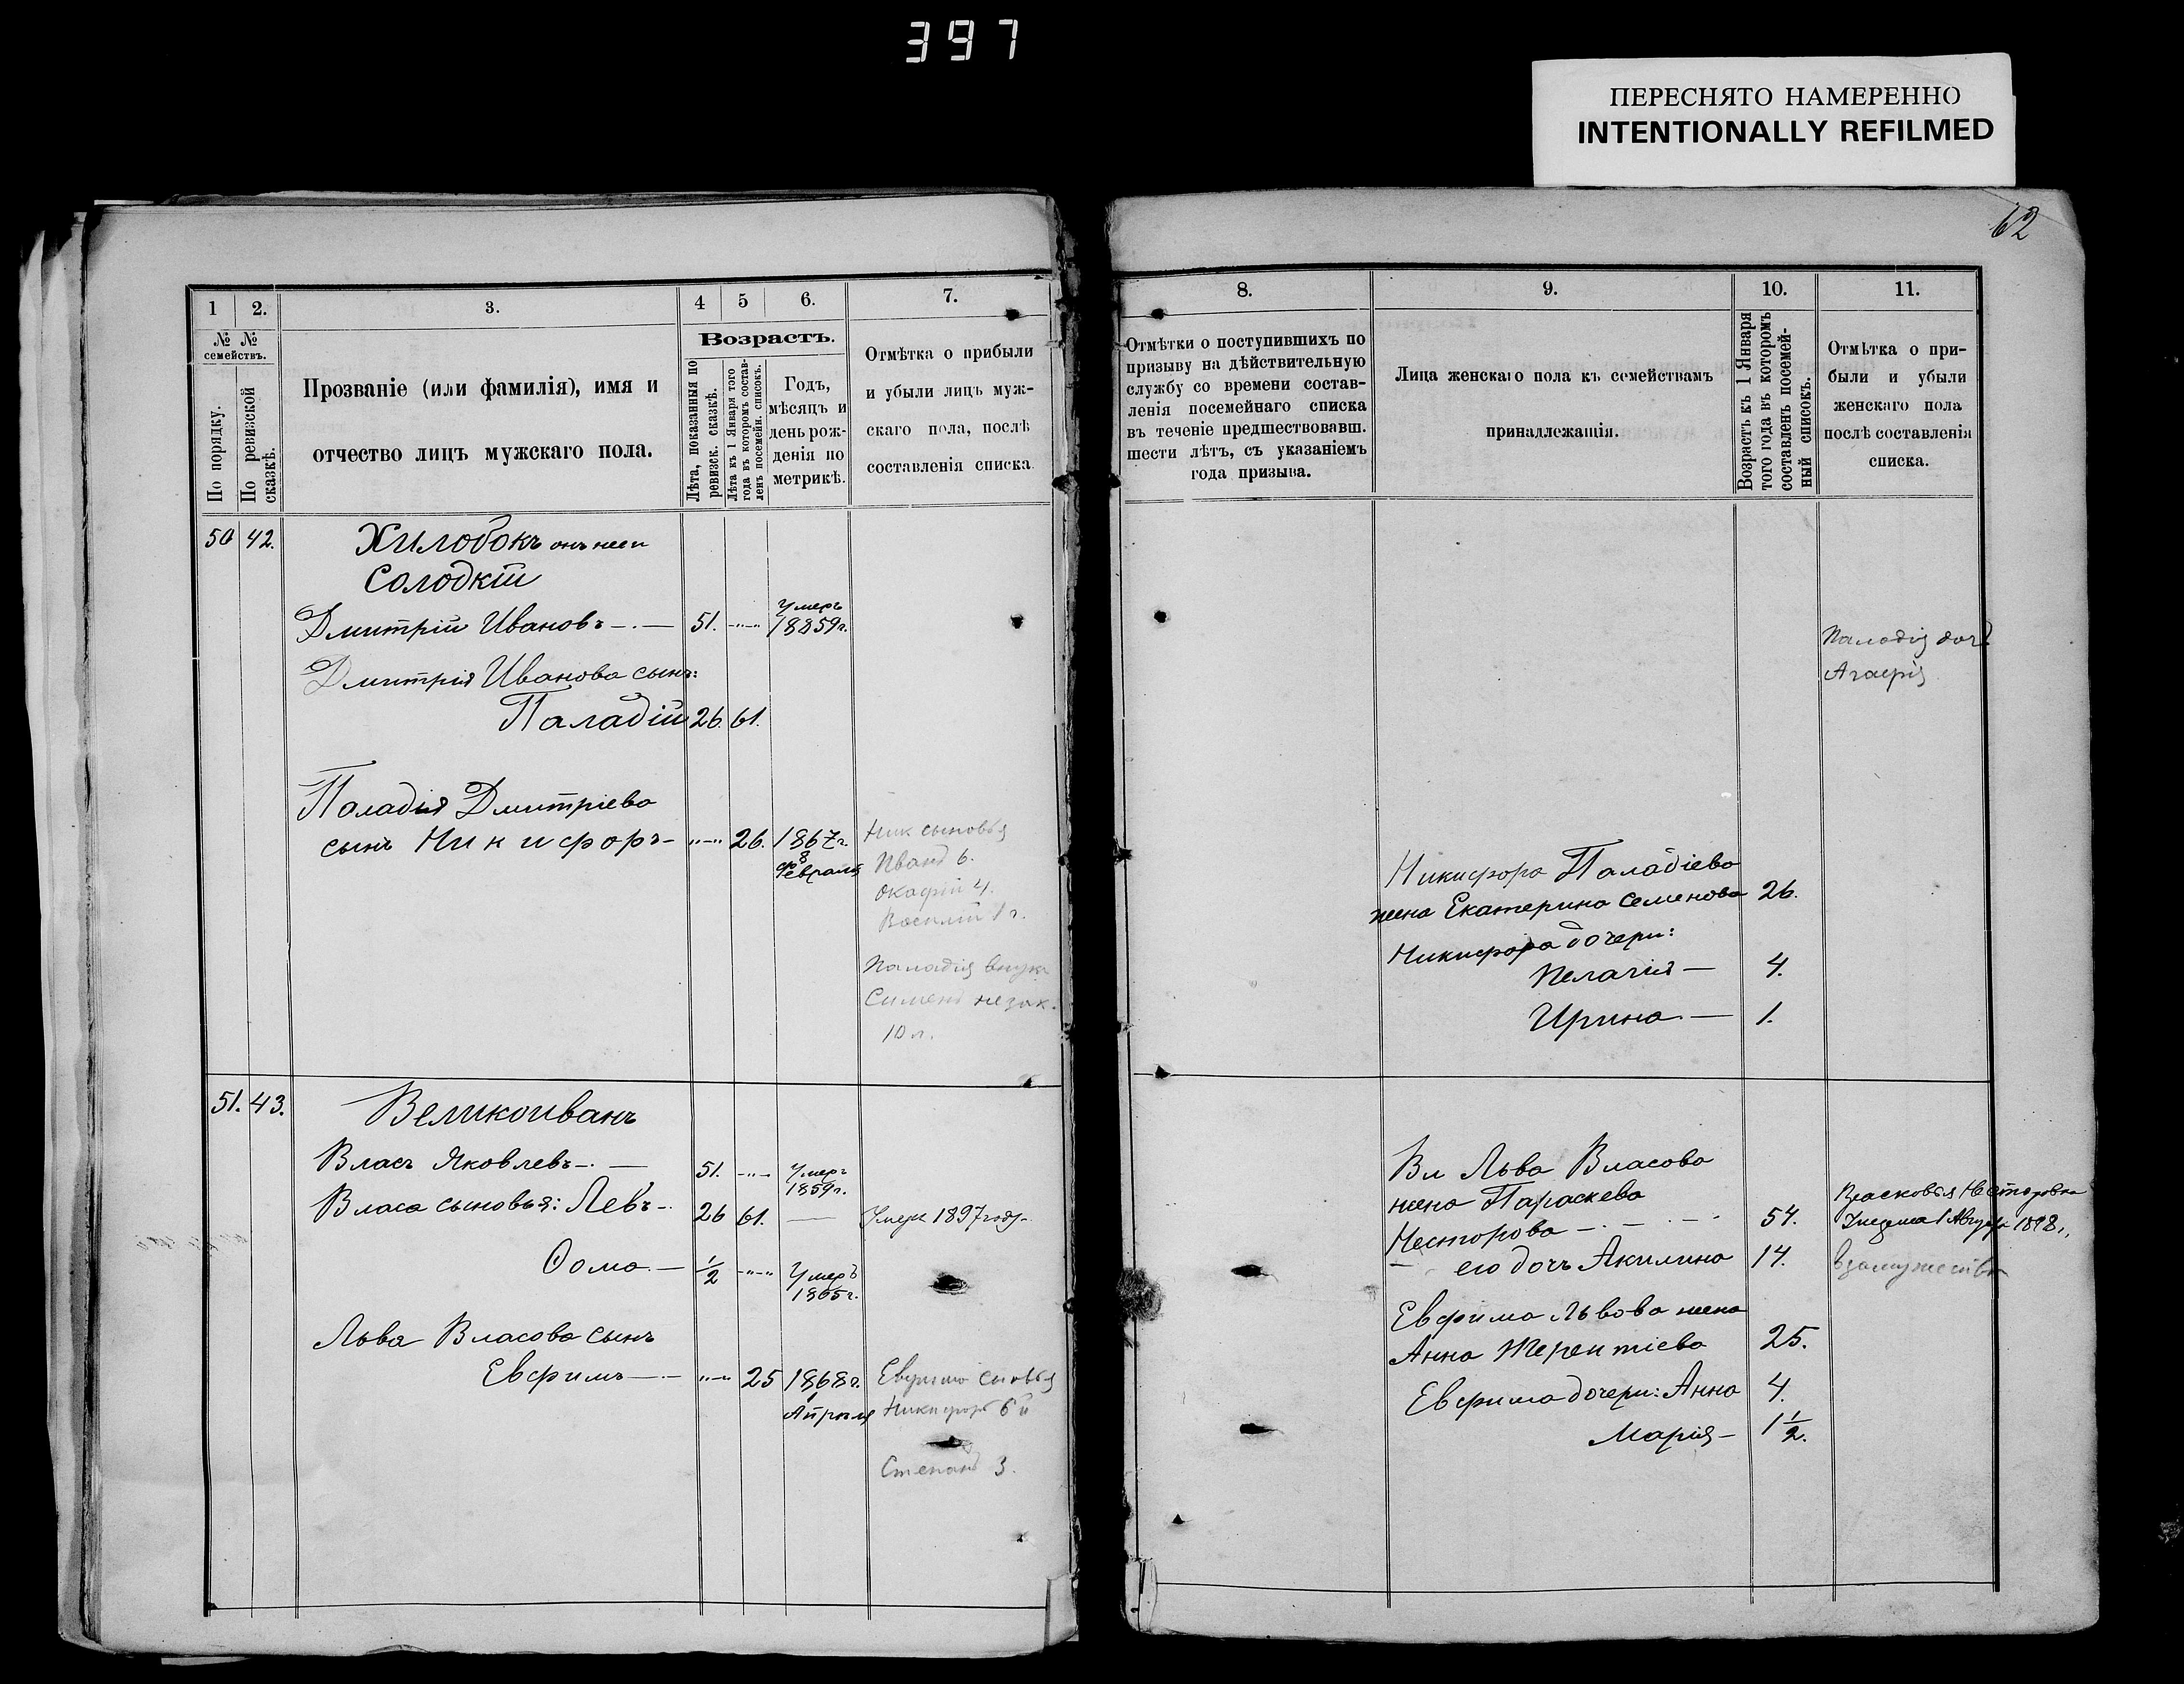 397
ПЕРЕСНЯТО НАМЕРЕННО
INTENTIONALLY REFILMED
62
1 2. 3. 4 5 6. 7.
№ №
семействъ.
По порядку.
По ревизской сказкѣ.
Прозваніе (или фамилія), имя и
отчество лицъ мужскаго пола.
Возрастъ.
Лѣта, показанныя по
ревизск. сказкѣ.
Лѣта къ 1 Января того
года въ которомъ состав-
ленъ посемейн. списокъ.
Годъ,
мѣсяцъ и
день рож-
денія по
метрикѣ.
Отмѣтка о прибыли
и убыли лицъ муж-
скаго пола, послѣ
составленія списка.
50 42. Хилобокъ онъ же и
Солодкій
Дмитрій Ивановъ 51. Умеръ
1859г.
Дмитрія Иванова сынъ:
Паладій 26. 61.
Паладія Дмитріева
сынъ Никифоръ 26. 1867г.
8
Февраля
Ник сыновья
Иванъ 6.
4.
Василій 1 г.
Паладія внукъ
Сименъ незак.
10 л.
51. 43. Великоиванъ
Власъ Яковлевъ 51. Умеръ
1859г.
Власа сыновья: Левъ 26 61. Умеръ 1897 году
Ѳома 1/2 Умеръ
1865г.
Льва Власова сынъ
Евфимъ 25 1868г.
1
Апрѣля
Евфима сыновья
Никифоръ 6
Степанъ 3.
8. 9. 10. 11.
Отмѣтки о поступившихъ по
призыву на дѣйствительную
службу со времени состав-
ленія посемейнаго списка
въ теченіе предшествовавш.
шести лѣтъ, съ указаніемъ
года призыва.
Лица женскаго пола къ семействамъ
принадлежащія.
Возрастъ къ 1 Января
того года въ которомъ
составленъ посемей-
ный списокъ.
Отмѣтка о при-
были и убыли
женскаго пола
послѣ составленія
списка.
Паладія доч.
Агафія
Никифора Паладіева
жена Екатерина Семенова 26.
Никифора дочери:
Пелагія 4.
Ирина 1.
Вл Льва Власова
жена Параскева
Несторова 54.
Несторовна
1898
его дочь Акилина 14.
взамужестве
Евфима Львова жена
Анна Терентіева 25.
Евфима дочери: Анна 4.
Марія 1 1/2.